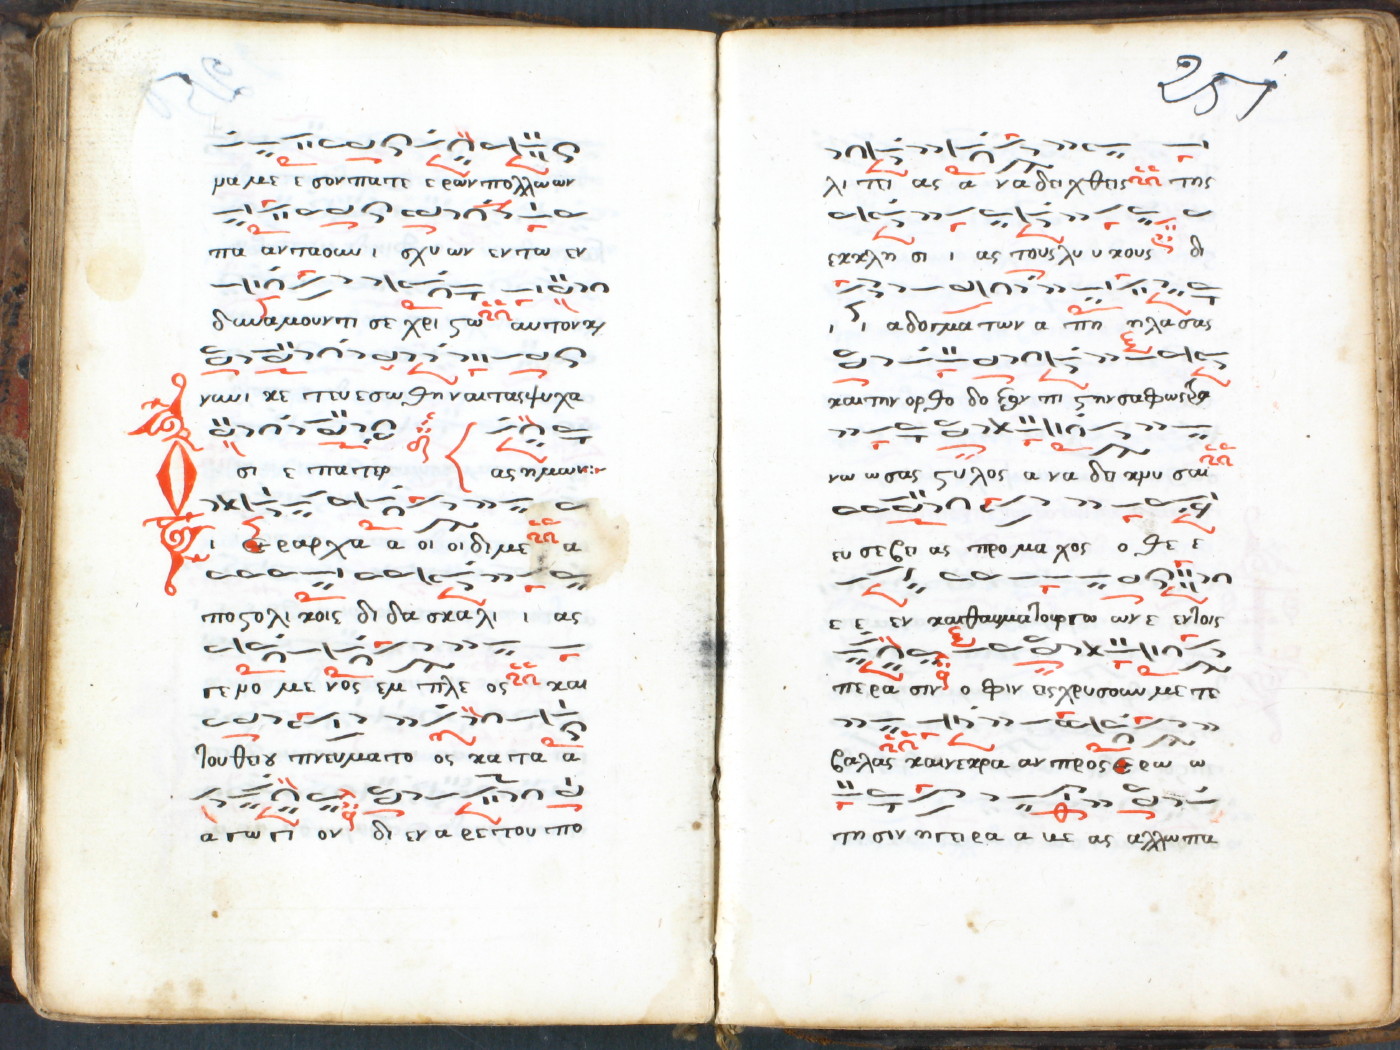 μα με ε σον πα τε ε ρων πολλω ων
πα αν πα σαν ι σχυ ων εν τω εν
δυ να μουν τι σε χρι στω αυ τον κι
νω νι κε τευ ε σω θη ναι τας ψυ χα
σι ε πα τερ ας η μων:~
ι ε ραρ χα α οι οι δι με α
πο στο λι κοις δι δα σκα λι ι ας
γε νο με νος εμ πλε ος και
του θει ου πνευ μα το ος κα τα α
α γω γι ον δι εν α ρε του πο
251
λι τει ας α να δει χθεις της
εκ κλη σι ι ας τους λυ υ κους δι
ι ι α δογ μα των α πη η λα σας
και την ορ θο δο ξον πι στην σα φως
νω ω σας στυ λος α να δει κνυ σαι
ευ σε βει ας προ μα χος ο θε ε
ε ε εν και θαυ μα το φρω ων ε εν τοις
πε ρα σιν ο φιν εις χρυ σουν με τε
βα λας και νε κρα αν προς ε ρω ω
τη σιν η γει ρα α με ας αλλω πα